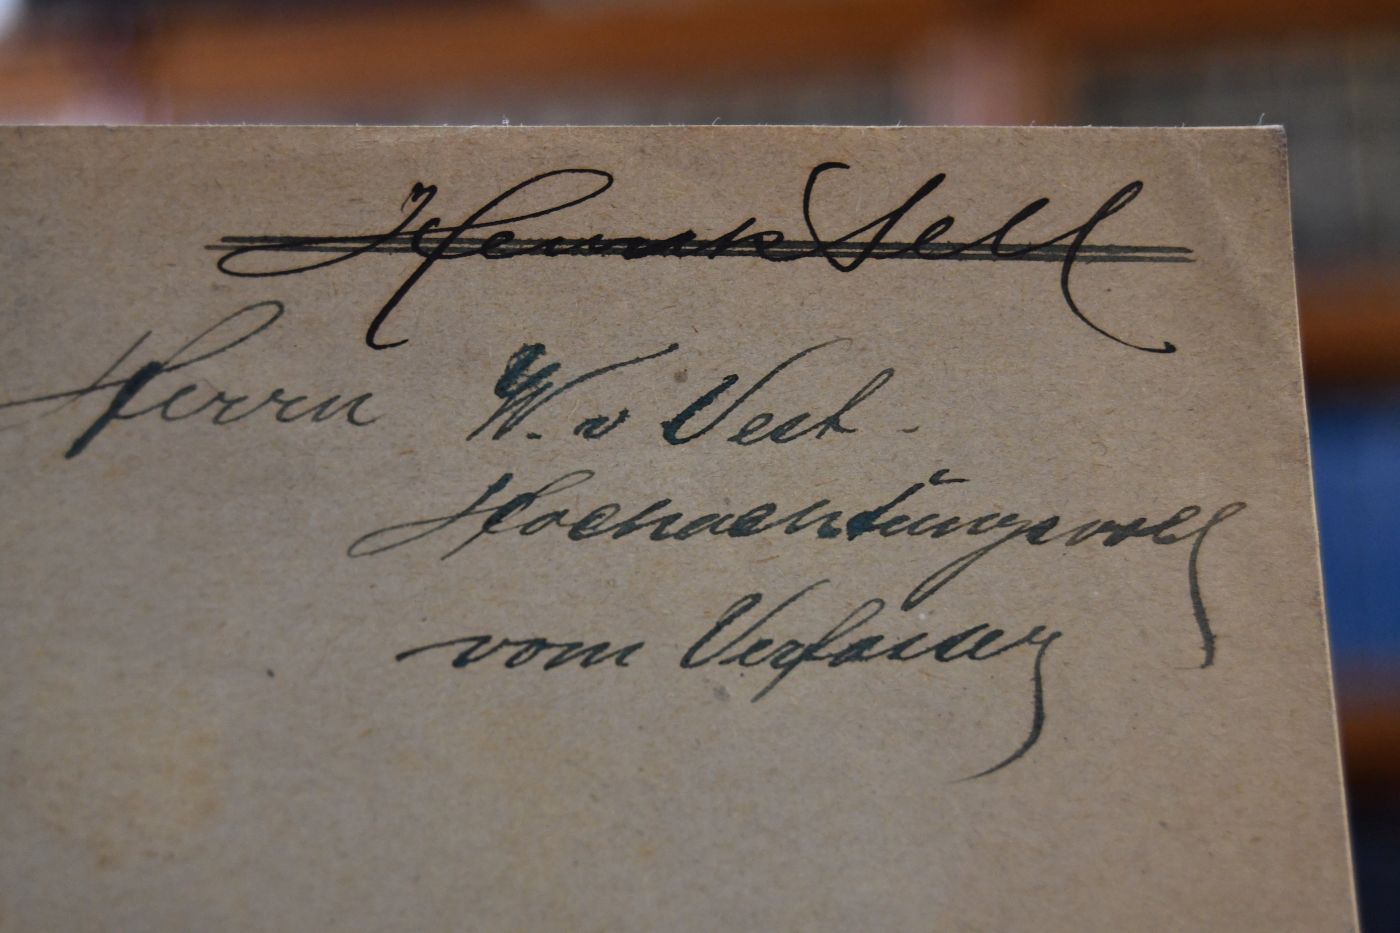 Heinrich Sell
Herrn W. v Vest.
Hochachtungsvoll
vom Verfasser